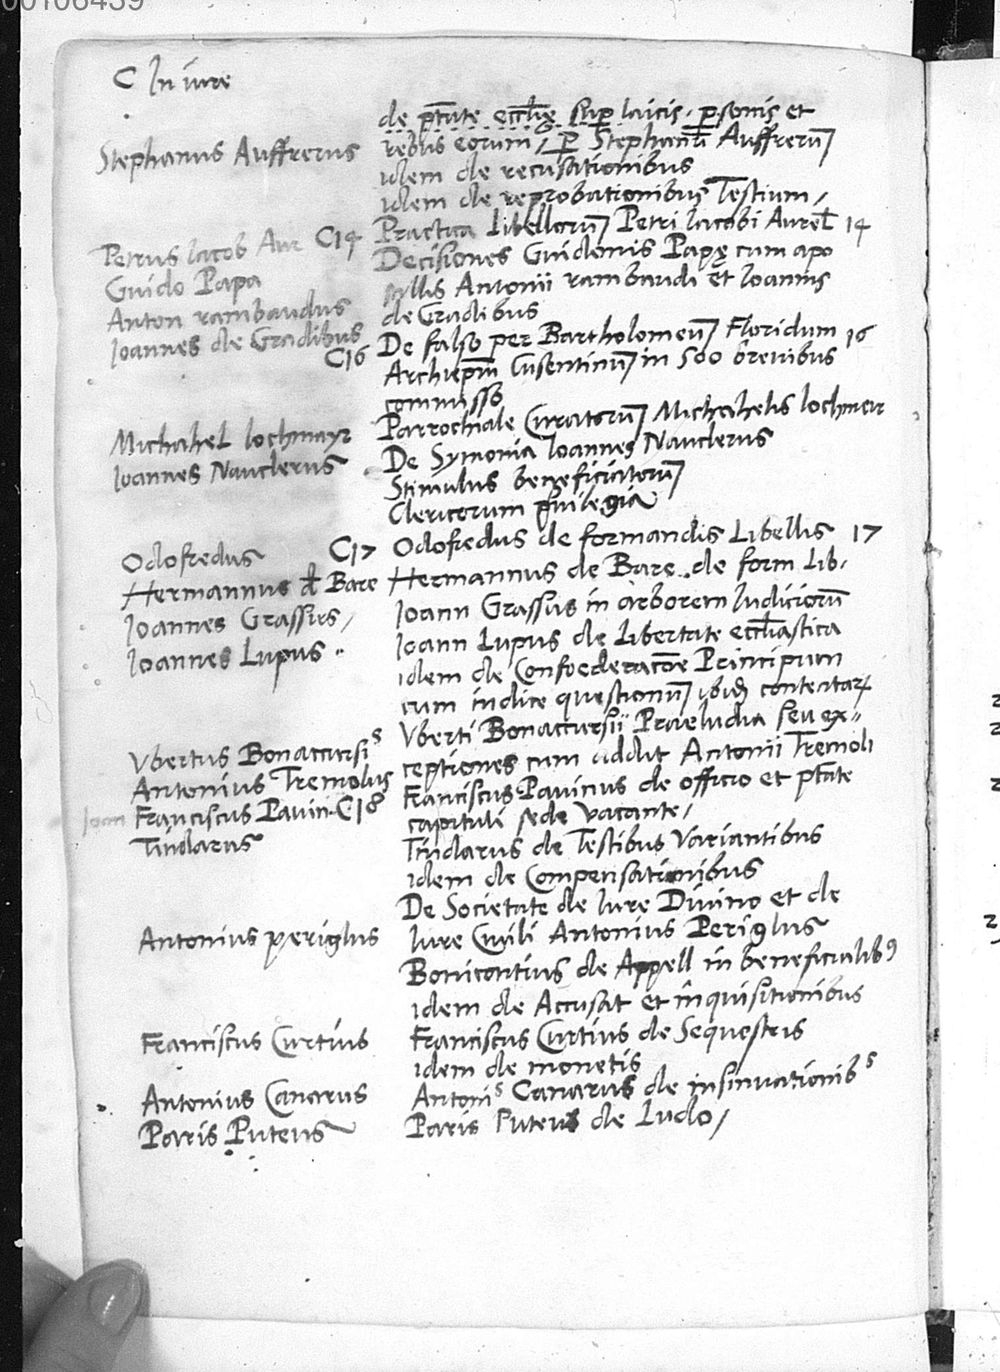 00106439
C In iure
de ptāte eccliȩ sup laicis, personis et
Stephanus Auffrerus rebus eorum, per Stephanū Auffrerum
idem de recusationibus
idem de reprobationibus Testium,
Petrus Iacob Aur C14 Practica Libellorum Petri Iacobi Aurel 14
Guido Papa Decisiones Guidonis Papȩ cum apo
Anton rambaudus stillis Antonii rambaudi et Ioannis
Ioannes de Gradibus de Gradibus
C16 De falso per Bartholomeum Floridum 16
Archiepm Cusentinum in 500 brevibus
commisso
Michahel lochmayr Parrochiale Curatorum Michahelis lochmeir
Ioannes Nauclerus De Symonia Ioannes Nauclerus
Stimulus beneficiatorum
Clericorum privilegia
Odofredus C17 Odofredus de formandis Libellis 17
Hermannus d Bare Hermannus de Bare de form Lib.
Ioannes Grassus, Ioann Grassus in arborem Iudiciorū
Ioannes Lupus Ioann Lupus de Libertate eccliastica
idem de Confoederacōe Principum
cum indice questionum ibid contentar
Ubertus Bonaccursis Uberti Bonaccursii Praeludia seu ex-
Antonius Tremolus ceptiones cum addit Antonii Tremoli
Ioan Franciscus Pavin. C18 Franciscus Pavinus de officio et ptāte
capituli sede vacante,
Tindarus Tindarus de Testibus Variantibus
idem de Compensationibus
De Societate de Iure Divino et de
Antonius periglus Iure Civili Antonius Periglus
Bonicontius de Appell in beneficialib9
idem de Accusat et inquisitionibus
Franciscus Curtius Franciscus Curtius de Sequestris
idem de monetis
Antonius Canarus Antonis Canarus de insinuationibs
Paris Puteus Paris Puteus de Ludo,